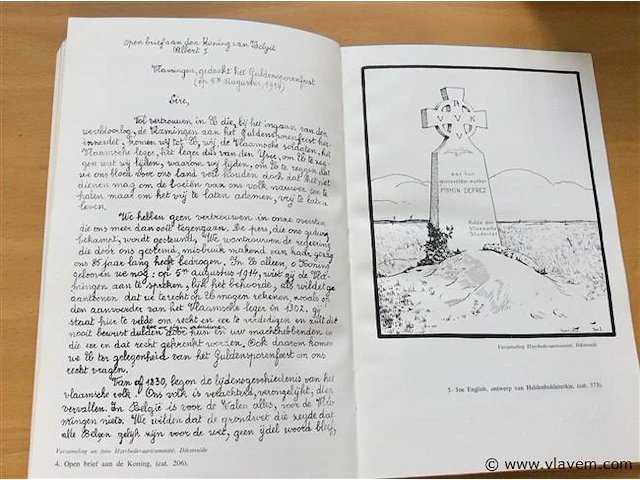 Open brief aan den Koning van België
Albert I
Vlamingen, gedenkt het Guldensporenfeest
(op 5ⁿ Augustus, 1914)
Sire,
Vol vertrouwen in U die, bij het ingaan van den
wereldoorlog, de Vlamingen aan het Guldensporenfeest her-
innerdet, komen wij tot U, wij, de Vlaamsche soldaten, het
Vlaamsche leger, het leger dus van den Yser, om U te zeg-
gen wat wij lijden, waarom wij lijden, om U te zeggen dat
we ons bloed voor ons land veil houden doch dat het niet
dienen mag om de boeien van ons volk nauwer toe te
halen maar om het vrij te laten ademen, vrij te laten
leven.
We hebben geen vertrouwen in onze oversten
die ons meer dan ooit tegengaan. De pers, die ons
bekampt, wordt gesteund. We wantrouwen de regeering
die door ons gesteund, misbruik makend van haar gezag
ons 85 jaar lang heeft bedrogen. In U alleen, o Koning
gelooven we nog; op 5ⁿ augustus 1914, wist gij de Vla-
mingen aan te spreken, lijk het behoorde, als wildet ge
aantoonen dat we terecht op U mogen rekenen, zooals op
den aanvoerder van het Vlaamsche leger in 1302. Gij
staat hier te velde om recht en eer te verdedigen en zult dit
nooit bewust dulden dat hun in uw machtsgebied
die eer en dat recht gekrenkt worden. Ook daarom komen
we U ter gelegenheid van het Guldensporenfeest om ons
recht vragen.
Van af 1830, begon de lijdensgeschiedenis van het
vlaamsche volk. Ons volk is verachterd, verongelijkt, diep
vervallen. In België is voor de Walen alles, voor de Vla-
mingen niets. We wilden dat de grondwet die zegde dat
alle Belgen gelijk zijn voor de wet, geen ijdel woord blijf,
Verzameling en foto IJzerbedevaartcomité, Diksmuide
4. Open brief aan de Koning, (cat. 206).
A
V V K
V
aan hun
FIRMIN DEPREZ
Helde der
Vlaamsche
Verzameling IJzerbedevaartcomité, Diksmuide
5. Joe English, ontwerp van Heldenhuldezerkje, (cat. 373).
© www.vlavem.com